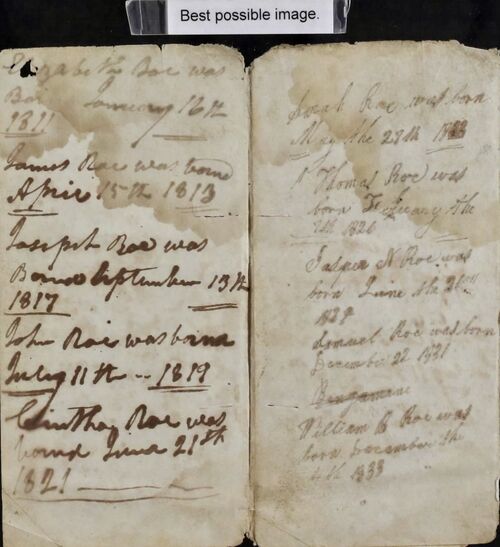 Best possible image.
Elizabeth Roe was
Bo January 16th
1811
James Roe was borne
Aprie 15th 1813
Joseph Roe was
Borne September 13th
1817
John Roe was borne
July 11th - 1819
Cinthay Roe was
bornd June 21st
1821
Roe was born
May the 27th 1823
Thomas Roe was
born the
1826
Jasper N Roe was
born June the
Samuel Roe was born
December 22 1831
Bengamine
William B Roe was
born December the
4th 1833